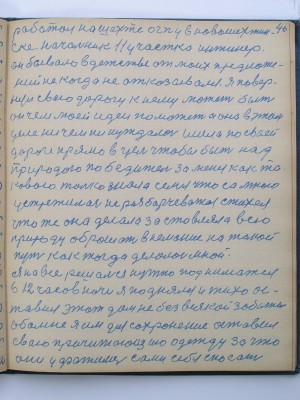 работал на шахте ОГПУ в новошахтин- 46
ске начальник 11 участка инженер.
он бывало в детстве от моих предложе-
ний некогда не отказовался. Я повер-
нул свою дорогу к нему может быть
он чем моей идеи поможет а она в этом
деле ни чем не нуждался шла по своей
дороге прямо в цель чтобы быть над
природою победителем за меня как та
кового только знала семья что са мною
не разбарчевался
что же она делала заставляла всю
природу обросить внимание на такой
путь как тогда делалось мной.
Я на все решался нужно поднимается
в 12 часов ночи я поднялся и тихо ос-
тавил этот дом не без всякой заботы
обо мне я им для сохронение оставил
свою одежду за что
они удражились сами себя спасать